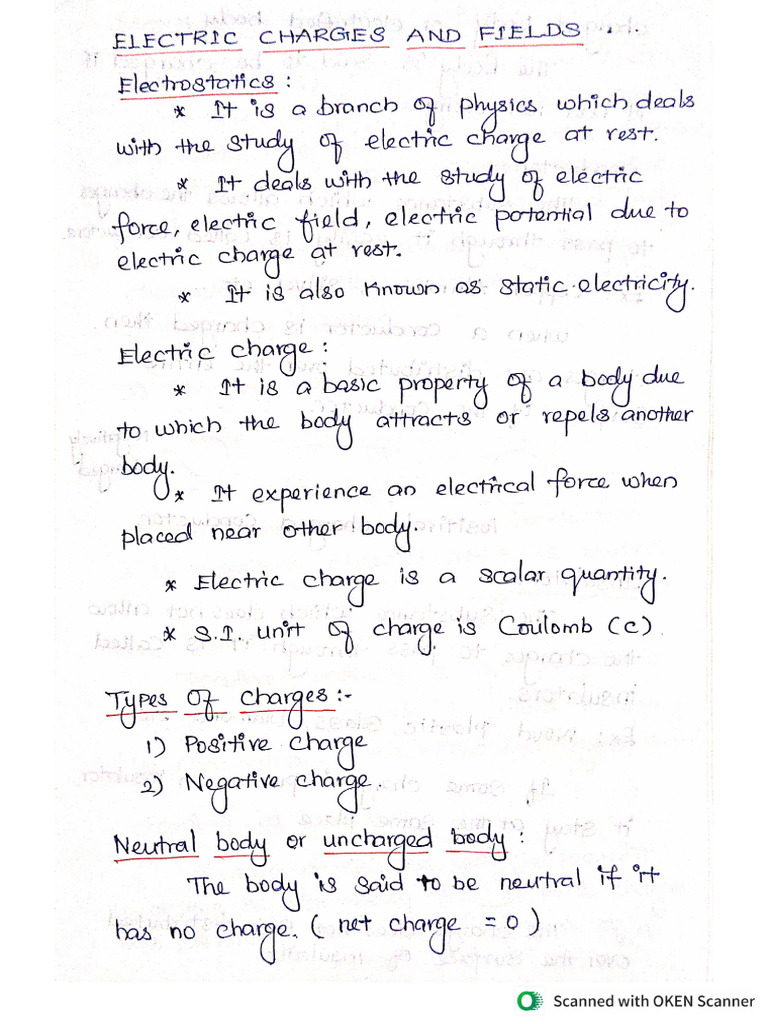 ELECTRIC CHARGES AND FIELDS
Electrostatics :
* It is a branch of physics which deals
with the study of electric charge at rest.
* It deals with the study of electric
force, electric field, electric potential due to
electric charge at rest.
* It is also known as static electricity.
Electric charge :
* It is a basic property of a body due
to which the body attracts or repels another
body.
* It experience an electrical force when
placed near other body.
* Electric charge is a scalar quantity.
* S.I. unit of charge is Coulomb (C)
Types of charges :-
1) Positive charge
2) Negative charge.
Neutral body or uncharged body :
The body is said to be neutral if it
has no charge. ( net charge = 0 )
Scanned with OKEN Scanner